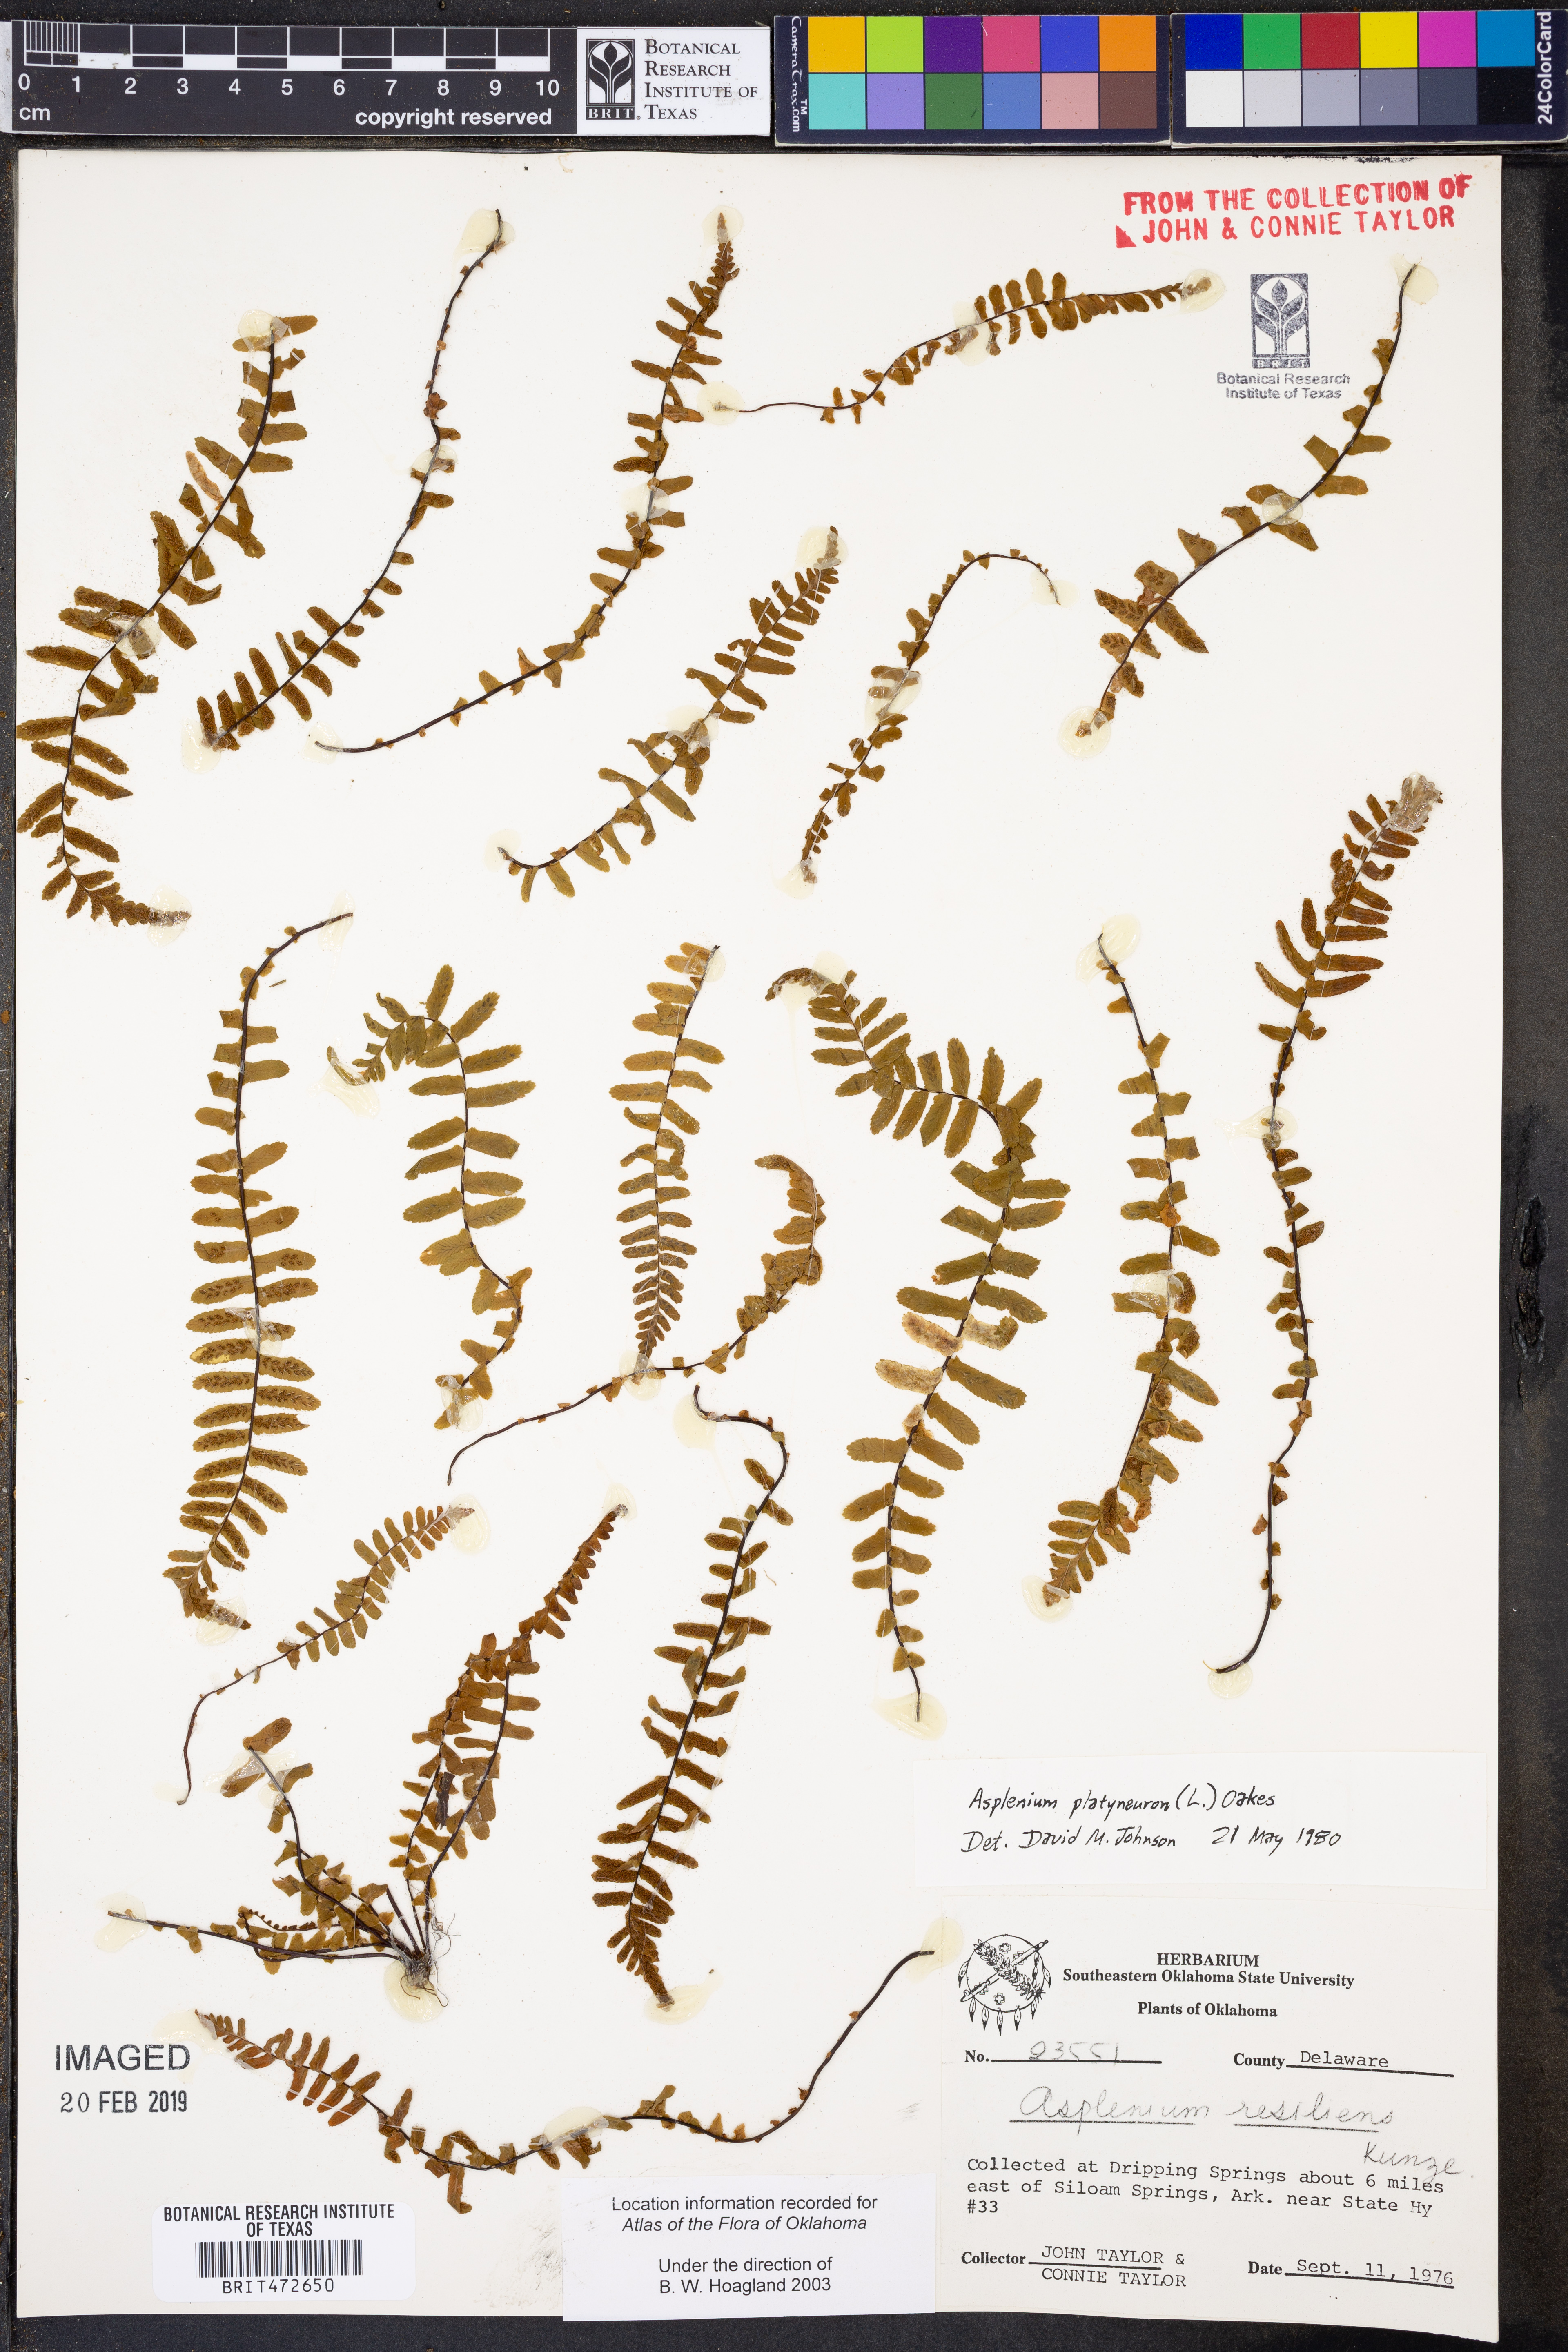 0 1 2 3 4 5 6 7 8 9 10
cm
copyright reserved
BRIT.
BOTANICAL
RESEARCH
INSTITUTE OF
TEXAS
CameraTrax.com
TM
24ColorCard
FROM THE COLLECTION OF
JOHN & CONNIE TAYLOR
BRIT
Botanical Research
Institute of Texas
Asplenium platyneuron (L.) Oakes
Det. David M. Johnson 21 May 1980
HERBARIUM
Southeastern Oklahoma State University
Plants of Oklahoma
No. 23551 County Delaware
Asplenium resiliens
Kunze.
Collected at Dripping Springs about 6 miles
east of Siloam Springs, Ark. near State Hy
#33
Collector JOHN TAYLOR &
CONNIE TAYLOR
Date Sept. 11, 1976
IMAGED
20 FEB 2019
BOTANICAL RESEARCH INSTITUTE
OF TEXAS
BRIT472650
Location information recorded for
Atlas of the Flora of Oklahoma
Under the direction of
B. W. Hoagland 2003